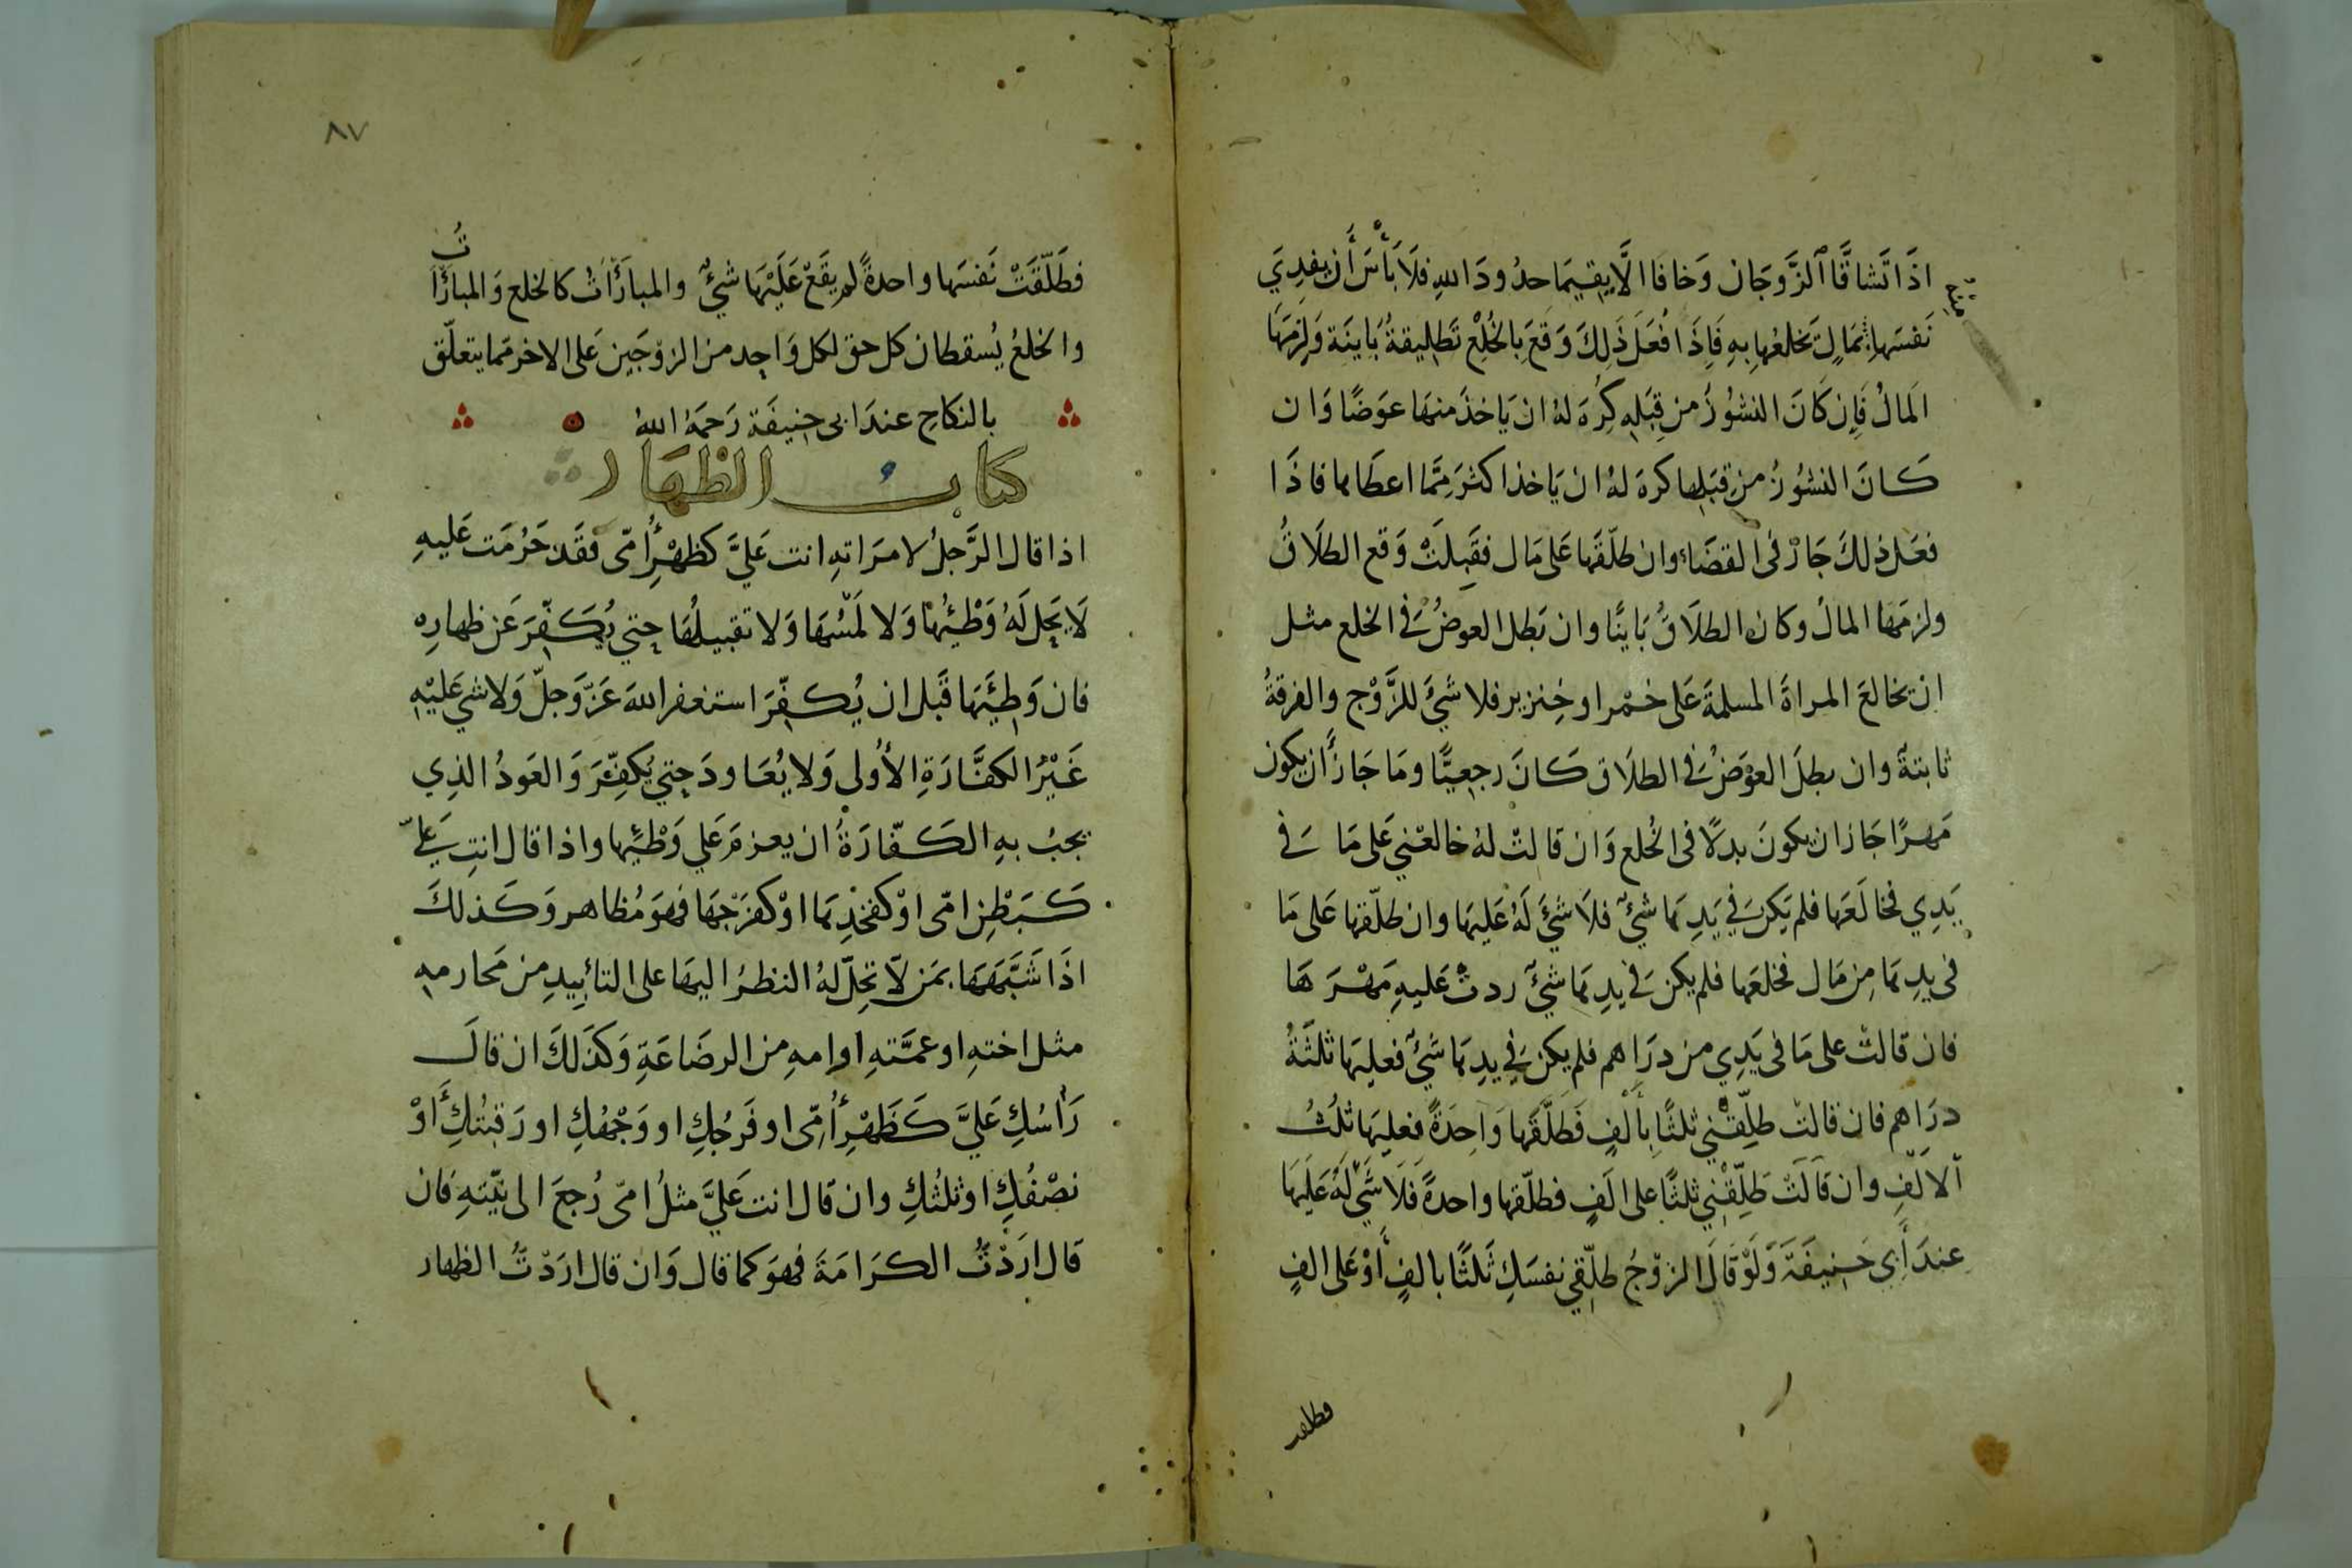 اذَا تَشاقَّا ٱلزَّوجَان وَخافا الَّا يقيمَا حدُودَ اللهِ فلَا بَأسَ أَن يفدِيَ
منه
نَفسَها بمَالٍ يَخلعُها بِهِ فَإِذَا فعَلَ ذَلِكَ وَقعَ بِالخُلعِ تَطليقةُ بَاينَة وَلزمَهَا
المَالُ فَإِن كَانَ النشوُزُ من قِبَلِه كُرِهَ لهُ ان يَاخذَ منهَا عوَضًا وَان
كَانَ النشُوزُ من قِبَلها كرهَ لهُ ان يَاخذ اكثرَ مِمَّا اعطَاها فاذَا
فعَل ذلكَ جَازَ فى القضَاءِ وان طلّقَها عَلى مَال فقَبِلَتْ وَقع الطلَاقُ
ولزمَها المالُ وكان الطلَاقُ بَاينًا وان بَطل العوضُ فى الخلع مثل
ان يخالعَ المراةَ المسلمةَ عَلى خمْر او خِنزير فلا شئَ للزَّوْج والفرقةُ
ثابتةً وان بطلَ العوَضُ فى الطلَاق كَانَ رجعيًّا ومَا جَازَ أَن يكون
مَهرًا جَاز ان يكونَ بدلًا فى الخُلع وَان قالتْ لهُ خالعْني عَلى مَا فى
يَدِي فخالَعَها فلم يَكن فى يَدِهَا شئٌ فلَا شئَ لَهُ عَليهَا وان طلّقها عَلى مَا
فى يدِهَا مِن مَال فخلعَها فلم يكن فى يدِهَا شئٌ ردتْ عَليهِ مَهْرَهَا
فان قالتْ على مَا فى يَدِي من درَاهم فلم يكن فى يدِهَا شَئٌ فعليهَا ثلثةُ
درَاهم فان قالت طلِّقْني ثلثًا بِأَلْفٍ فَطَلَّقَها وَاحِدَةً فعليهَا ثلثُ
ألالفِ وان قَالَتْ طَلِّقْني ثلثًا على الَفٍ فطلّقها واحدةً فَلَا شَئَ لَهُ عَليهَا
عندَ أَبِي حَنِيفَةَ وَلَوْ قَالَ الزوّجُ طلّقي نفسَكِ ثَلثًا بالفٍ أَوْ عَلى الفٍ
فطلقت
٨٧
فطَلّقَتْ نَفسَها واحدةً لم يقَعْ عَلَيْهَا شئٌ والمبارَأَاتُ كالخلع وَالمبارَأَاتُ
والخلعُ يُسقطان كل حق لكل وَاحِد من الزوّجَين عَلى الاخر مما يتعلّق
بالنكاح عندَ ابى حنيفَة رَحمَهُ اللهُ
كتاب الظهار
اذا قال الرَّجلُ لامرَاتهِ انت عَليَّ كظهْرِ أُمّى فقَد حَرُمَت عَليهِ
لَا يَحِل لَهُ وَطْئُهَا وَلا لَمْسُهَا وَلا تقبيلُهَا حتي يُكَفِّرَ عَن ظهارِه
فان وَطِئَهَا قَبل ان يُكَفِّرَ استغفر اللهَ عَزّ وَجلّ وَلا شي عَليْهِ
غَيْرُ الكفَّارَةِ الأُولى وَلا يُعَاودَ حتي يُكفِّرَ وَالعَودُ الذِي
يجبُ بهِ الكَفّارَةُ ان يعزمَ عَلي وَطْئِها واذا قال انتِ عَليّ
كَبَطْنِ امّى اوْ كفخذِهَا اوْ كفَرْجهَا فهوَ مُظاهر وَكَذلكَ
اذَا شَبَّهَهَا بمَن لَا تحِلّ لهُ النظرُ اليهَا على التأبيدِ من مَحارمهِ
مثل اختهِ او عمَّتهِ او امهِ من الرضَاعَةِ وَكذَلكَ ان قالَ
رَأسُكِ عَليَّ كَظَهْرِ أُمِّى او فَرجُكِ او وَجْهُكِ او رَقبتُكِ أَوْ
نصْفُكِ او ثلثُكِ وان قال انت عَليَّ مثلُ امّى رُجعَ الى نيّتهِ فان
قال ارَدْتُ الكرَامَةَ فهوَ كما قال وَان قال ارَدْتُ الظهار